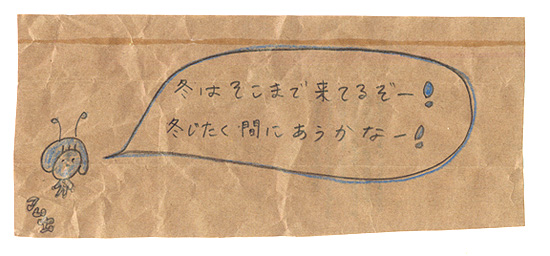 冬はそこまで来てるぞー!
冬じたく間にあうかなー!